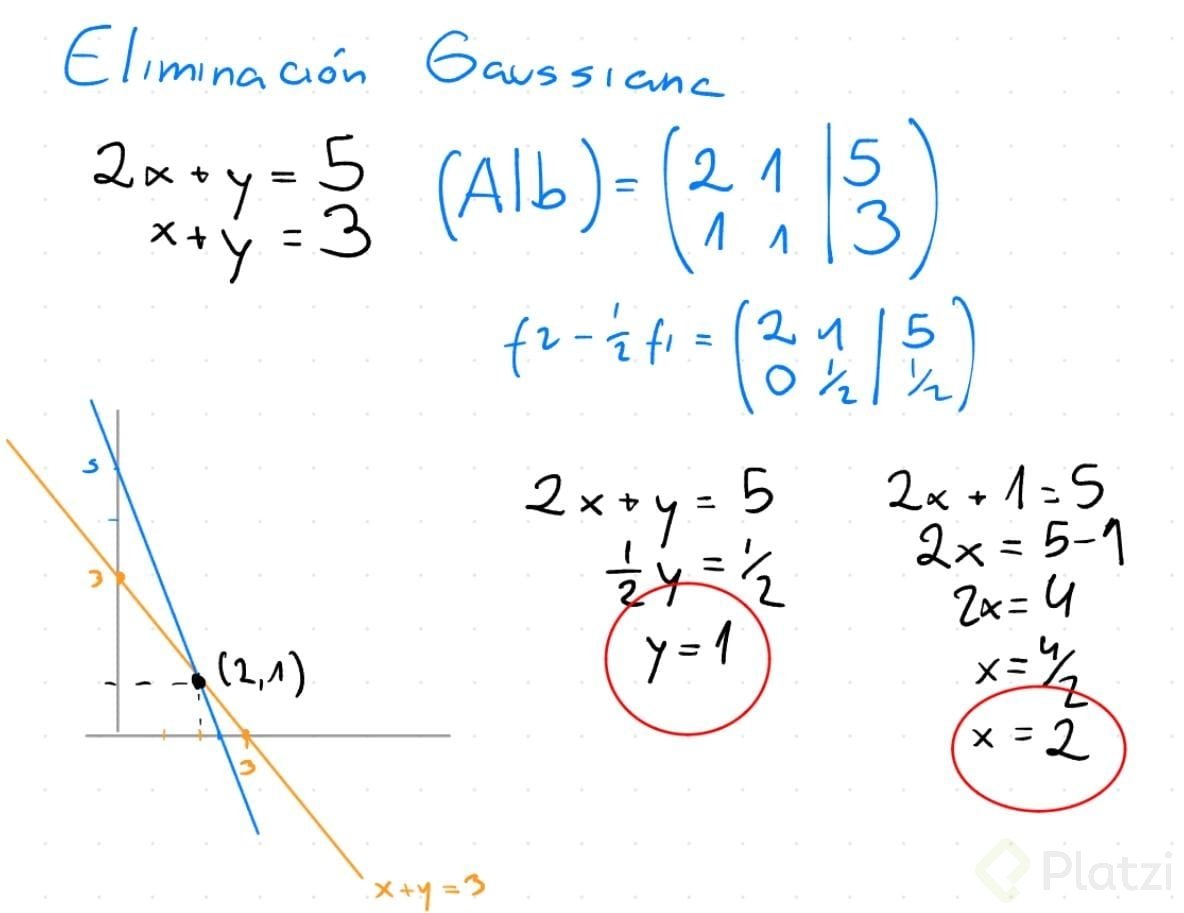 Eliminación Gaussiana
2x + y = 5
x + y = 3
(A|b) = (2 1 | 5
1 1 | 3)
f2 - 1/2 f1 = (2 1 | 5
0 1/2 | 1/2)
2x + y = 5
1/2 y = 1/2
y = 1
2x + 1 = 5
2x = 5 - 1
2x = 4
x = 4/2
x = 2
5
3
(2,1)
3
x + y = 3
Platzi